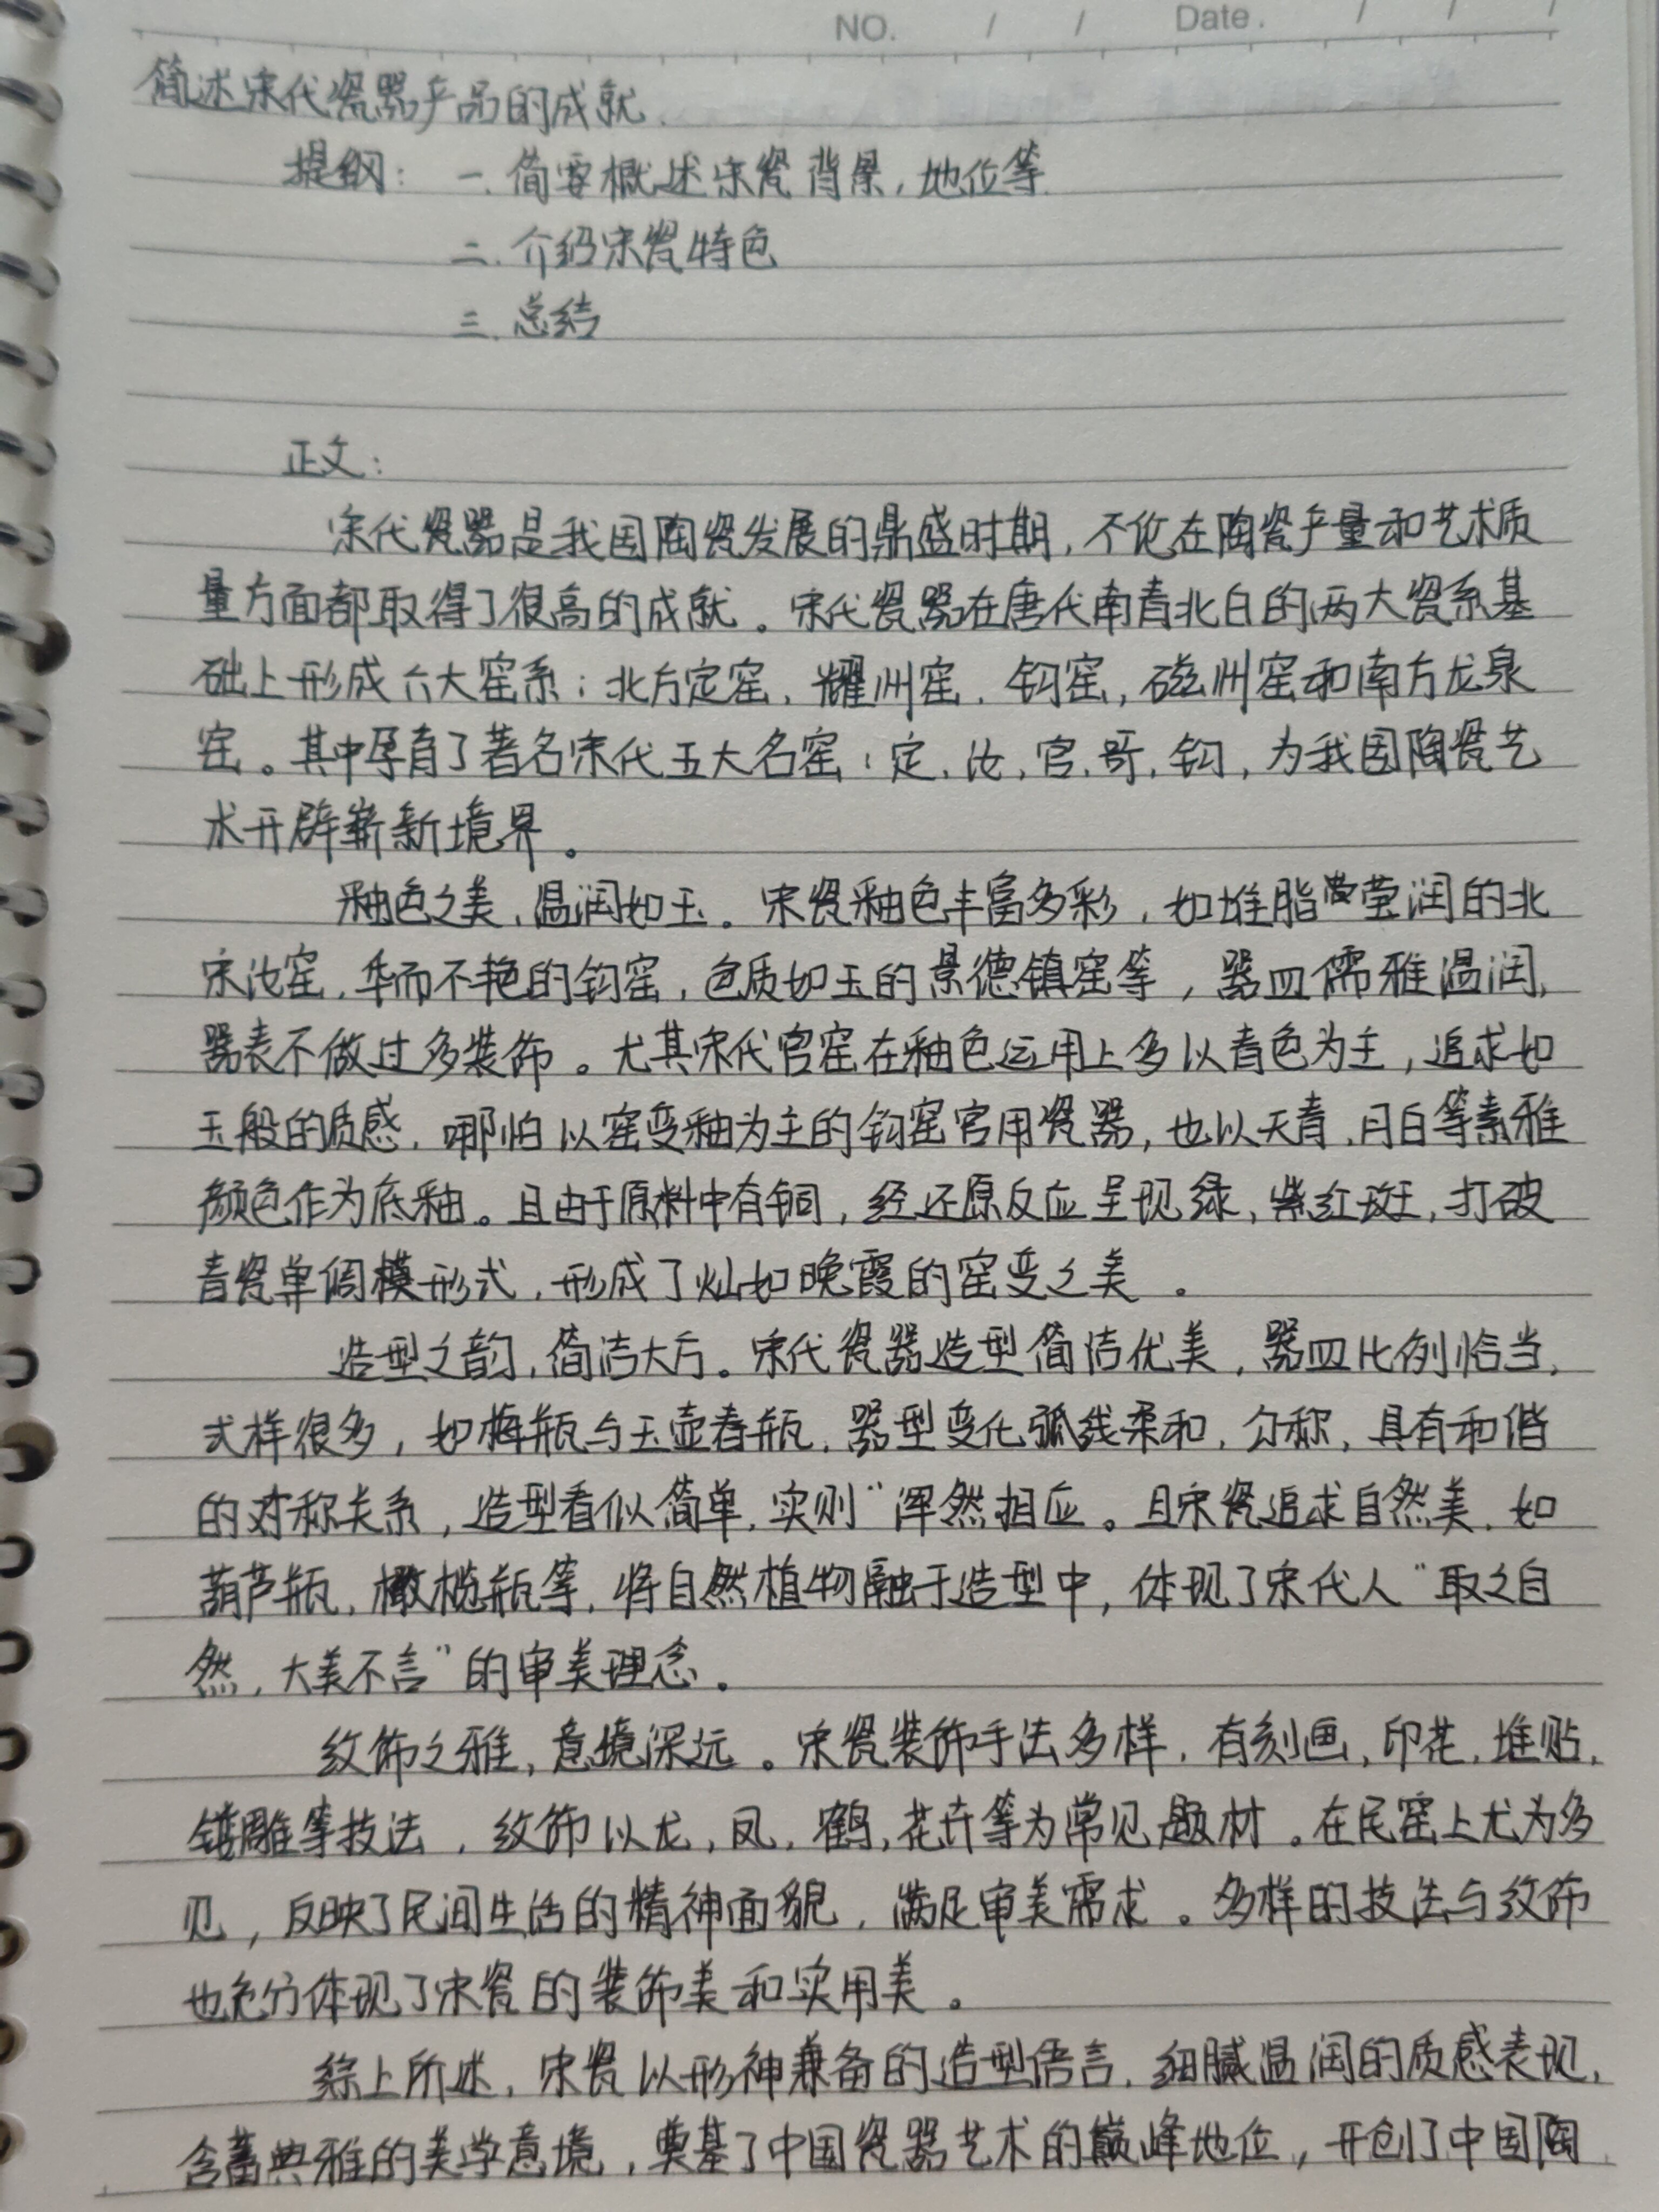 NO. / / Date. / / /
简述宋代瓷器产品的成就.
提纲: 一.简要概述宋瓷背景,地位等.
二.介绍宋瓷特色
三.总结
正文:
宋代瓷器是我国陶瓷发展的鼎盛时期,不论在陶瓷产量和艺术质
量方面都取得了很高的成就。宋代瓷器在唐代南青北白的两大瓷系基
础上形成六大窑系:北方定窑、耀州窑、钧窑,磁州窑和南方龙泉
窑。其中孕育了著名宋代五大名窑:定、汝、官、哥、钧,为我国陶瓷艺
术开辟崭新境界。
釉色之美,温润如玉。宋瓷釉色丰富多彩,如堆脂莹润的北
宋汝窑,华而不艳的钧窑,色质如玉的景德镇窑等,器皿儒雅温润,
器表不做过多装饰。尤其宋代官窑在釉色运用上多以青色为主,追求如
玉般的质感,哪怕以窑变釉为主的钧窑官用瓷器,也以天青、月白等素雅
颜色作为底釉。且由于原料中有铜,经还原反应呈现绿,紫红斑,打破
青瓷单调模形式,形成了灿如晚霞的窑变之美。
造型之韵,简洁大方。宋代瓷器造型简洁优美,器皿比例恰当,
式样很多,如梅瓶与玉壶春瓶,器型变化弧线柔和,匀称,具有和谐
的对称关系,造型看似简单,实则“浑然相应。且宋瓷追求自然美,如
葫芦瓶,橄榄瓶等,将自然植物融于造型中,体现了宋代人“取之自
然,大美不言”的审美理念。
纹饰之雅,意境深远。宋瓷装饰手法多样,有刻画,印花,堆贴,
镂雕等技法,纹饰以龙,凤,鹤,花卉等为常见题材。在民窑上尤为多
见,反映了民间生活的精神面貌,满足审美需求。多样的技法与纹饰
也充分体现了宋瓷的装饰美和实用美。
综上所述,宋瓷以形神兼备的造型语言,细腻温润的质感表现,
含蓄典雅的美学意境,奠基了中国瓷器艺术的巅峰地位,开创了中国陶